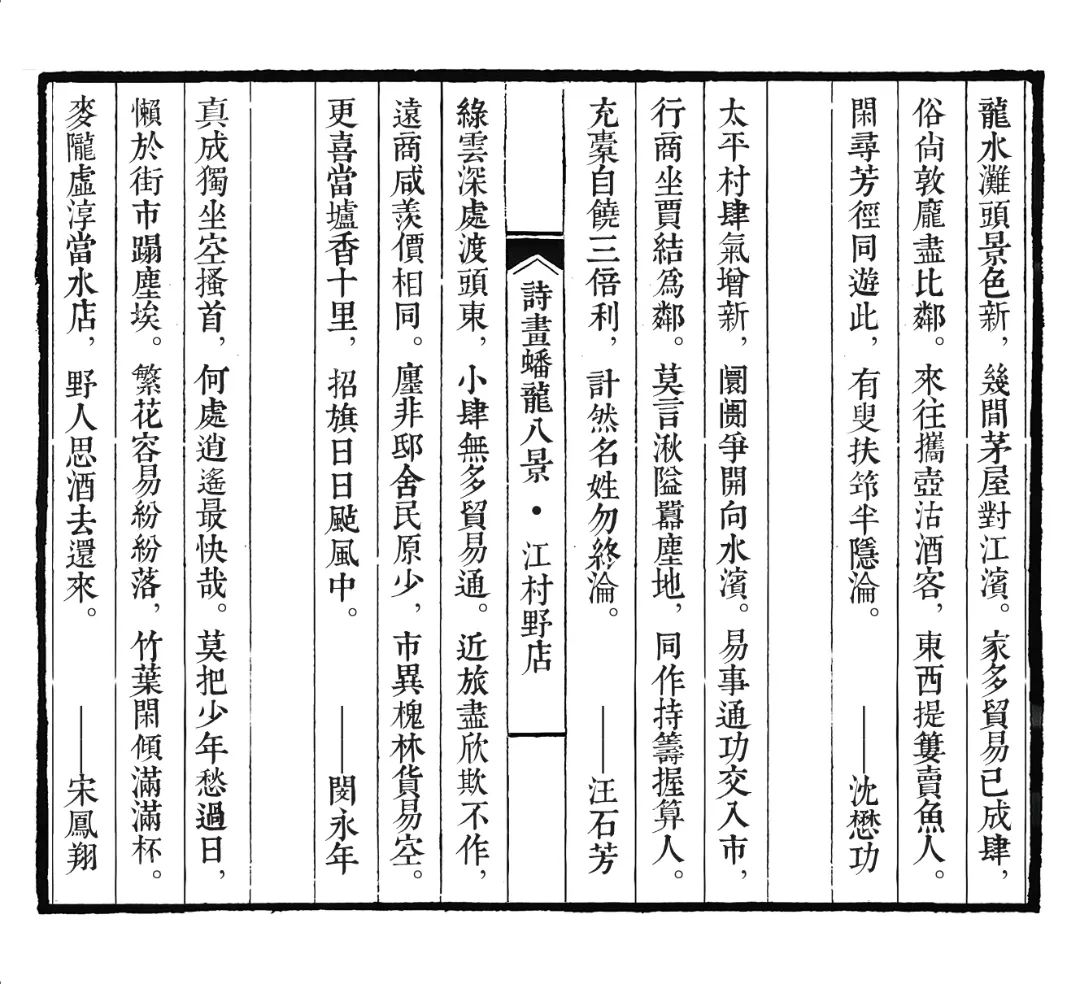 龍水灘頭景色新，幾間茅屋對江濱。家多貿易已成肆，
俗尙敦龐盡比鄰。來往攜壺沽酒客，東西提簍賣魚人。
閑尋芳徑同遊此，有叟扶筇半隱淪。——沈懋功
太平村肆氣增新，闤闠爭開向水濱。易事通功交入市，
行商坐賈結爲鄰。莫言湫隘囂塵地，同作持籌握算人。
充橐自饒三倍利，計然名姓勿終淪。——汪石芳
詩畫蟠龍八景·江村野店
綠雲深處渡頭東，小肆無多貿易通。近旅盡欣欺不作，
遠商咸羨價相同。廛非邸舍民原少，市異槐林貨易空。
更喜當壚香十里，招旗日日颭風中。——閔永年
真成獨坐空搔首，何處逍遙最快哉。莫把少年愁過日，
懶於街市蹋塵埃。繁花容易紛紛落，竹葉閑傾滿滿杯。
麥隴虛淳當水店，野人思酒去還來。——宋鳳翔